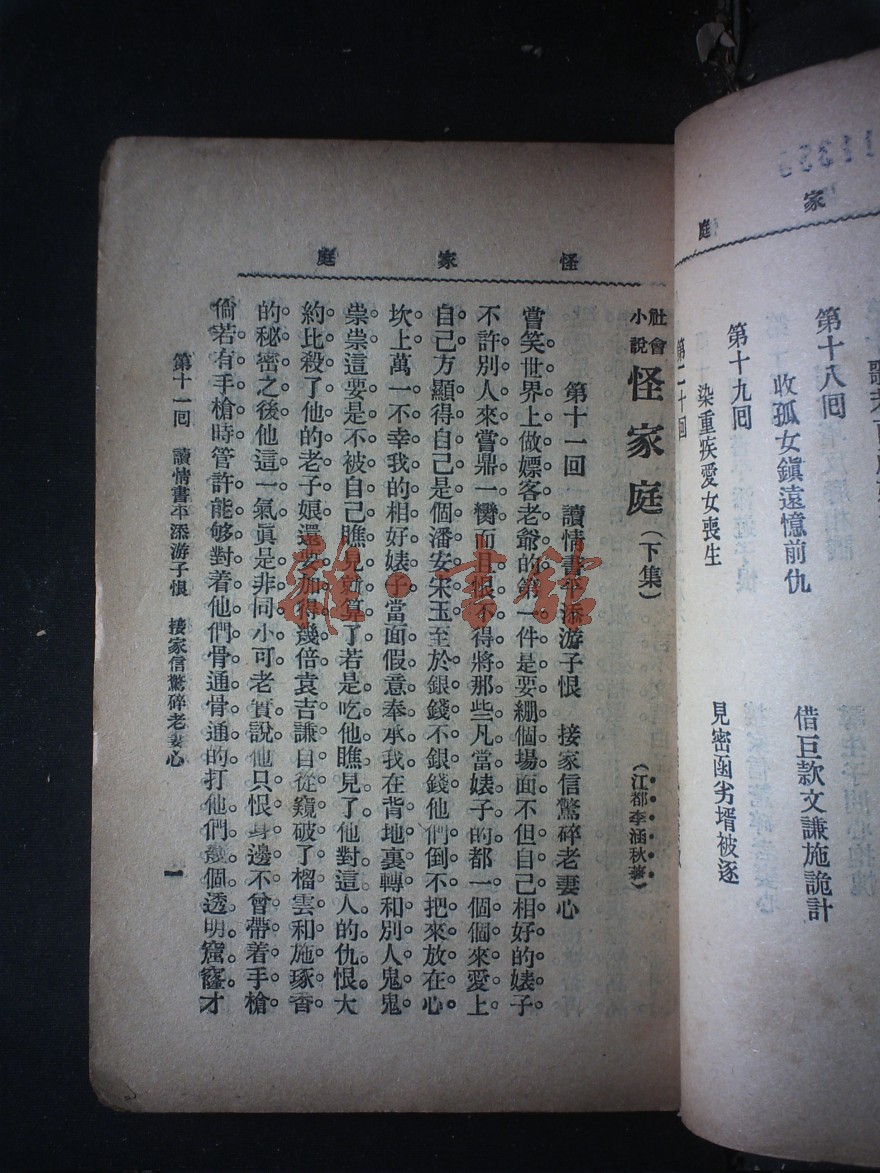 11353
家
庭
第十八回
收孤女鎭遠憶前仇
借巨款文謙施詭計
第十九回
染重疾愛女喪生
見密函劣壻被逐
第二十回
怪家庭
社會小說
怪家庭(下集)
(江都李涵秋著)
第十一回 讀情書平添游子恨 接家信驚碎老妻心
嘗笑世界上做嫖客老爺的第一件是要綳個場面不但自己相好的婊子
不許別人來嘗鼎一臠而且恨不得將那些凡當婊子的都一個個來愛上
自己方顯得自己是個潘安宋玉至於銀錢不銀錢他們倒不把來放在心
坎上萬一不幸我的相好婊子當面假意奉承我在背地裏轉和別人鬼鬼
祟祟這要是不被自己瞧見就算了若是吃他瞧見了他對這人的仇恨大
約比殺了他的老子娘還要加得幾倍袁吉謙自從窺破了榴雲和施琢香
的秘密之後他這一氣眞是非同小可老實說他只恨身邊不曾帶着手槍
倘若有手槍時管許能够對着他們骨通骨通的打他們幾個透明窟窿才
第十一回 讀情書平添游子恨 接家信驚碎老妻心
一
雜·書館